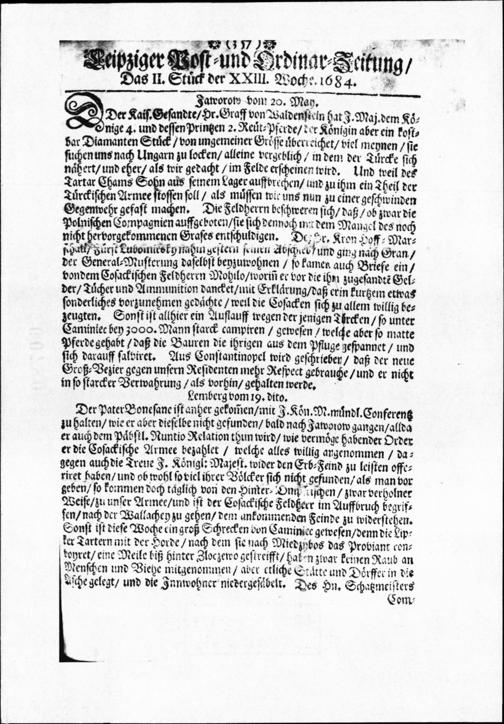 (357)
Leipziger Post-und Ordinar-Zeitung/
Das II. Stück der XXIII. Woche. 1684.
Jaworow vom 20. May.
Der Kaiſ. Geſandte/Hr. Graff von Waldenſtein hat J. Maj. dem Kö-
nige 4. und deſſen Printzen 2. Reüt-Pferde/der Königin aber ein koſt-
bar Diamanten Stück/von ungemeiner Gröſſe überreichet/viel meynen/ſie
ſuchen uns nach Ungarn zu locken/alleine vergeblich/in dem der Türcke ſich
nähert/und eher/als wir gedacht/im Felde erſcheinen wird. Und weil des
Tartar Chams Sohn aus ſeinem Lager auffbrechen/und zu ihm ein Theil der
Türckiſchen Armee ſtoſſen ſoll/als müſſen wir uns zu einer geſchwinden
Gegenwehr gefaſt machen. Die Feldherrn beſchweren ſich/daß/ob zwar die
Polniſchen Compagnien auffgeboten/ſie ſich dennoch mit dem Mangel des noch
nicht hervorgekommenen Graſes entſchuldigen. Der Hr. Kron Hoff-Mar-
ſchall/Fürſt Lubomirsky nahm geſtern ſeinen Abſchied/und ging nach Gran/
der General-Muſterung daſelbſt beyzuwohnen/ſo kamen auch Briefe ein/
von dem Coſackiſchen Feldherrn Mohilo/worin er vor die ihm zugeſandte Gel-
der/Tücher und Ammunition dancket/mit Erklärung/daß er in kurtzem etwas
ſonderliches vorzunehmen gedächte/weil die Coſacken ſich zu allem willig be-
zeugten. Sonſt iſt allhier ein Aufflauff wegen derjenigen Türcken/ſo unter
Caminiec bey 3000. Mann ſtarck campiren/geweſen/welche aber ſo matte
Pferde gehabt/daß die Bauren die ihrigen aus dem Pfluge geſpannet/und
ſich darauff ſalviret. Aus Conſtantinopel wird geſchrieben/daß der neue
Groß-Vezier gegen unſern Reſidenten mehr Reſpect gebrauche/und er nicht
in ſo ſtarcker Verwahrung/als vorhin/gehalten werde.
Lemberg vom 19. dito.
Der Pater Boneſane iſt anher gekommen/mit J. Kön. M. mündl. Conferentz
zu halten/wie er aber dieſelbe nicht gefunden/bald nach Jaworow gangen/allda
er auch dem Päbſtl. Nuntio Relation thun wird/wie vermöge habender Order
er die Coſackiſche Armee bezahlet/welche alles willig angenommen/da-
gegen auch die Treue J. Königl: Majeſt. wider den Erb-Feind zu leiſten offe-
riret haben/und ob wohl ſo viel ihrer Völcker ſich nicht gefunden/als man vor
geben/ſo kommen doch täglich von den Hinter- /zwar verholner
Weiſe/zu unſer Armee/und iſt der Coſackiſche Feldherr im Auffbruch begrif-
fen/nach der Wallachey zu gehen/dem ankommenden Feinde zu widerſtehen.
Sonſt iſt dieſe Woche ein groß Schrecken von Caminiec geweſen/denn die Lip-
ker Tartern mit der Horde/nach dem ſie nach Miedzybos das Proviant con-
voyret/eine Meile biß hinter Zloczewo geſtreifft/haben zwar keinen Raub an
Menſchen und Viehe mitgenommen/aber etliche Städte und Dörffer in die
Aſche gelegt/und die Innwohner niedergeſäbelt. Des Hn. Schatzmeiſters
Com-